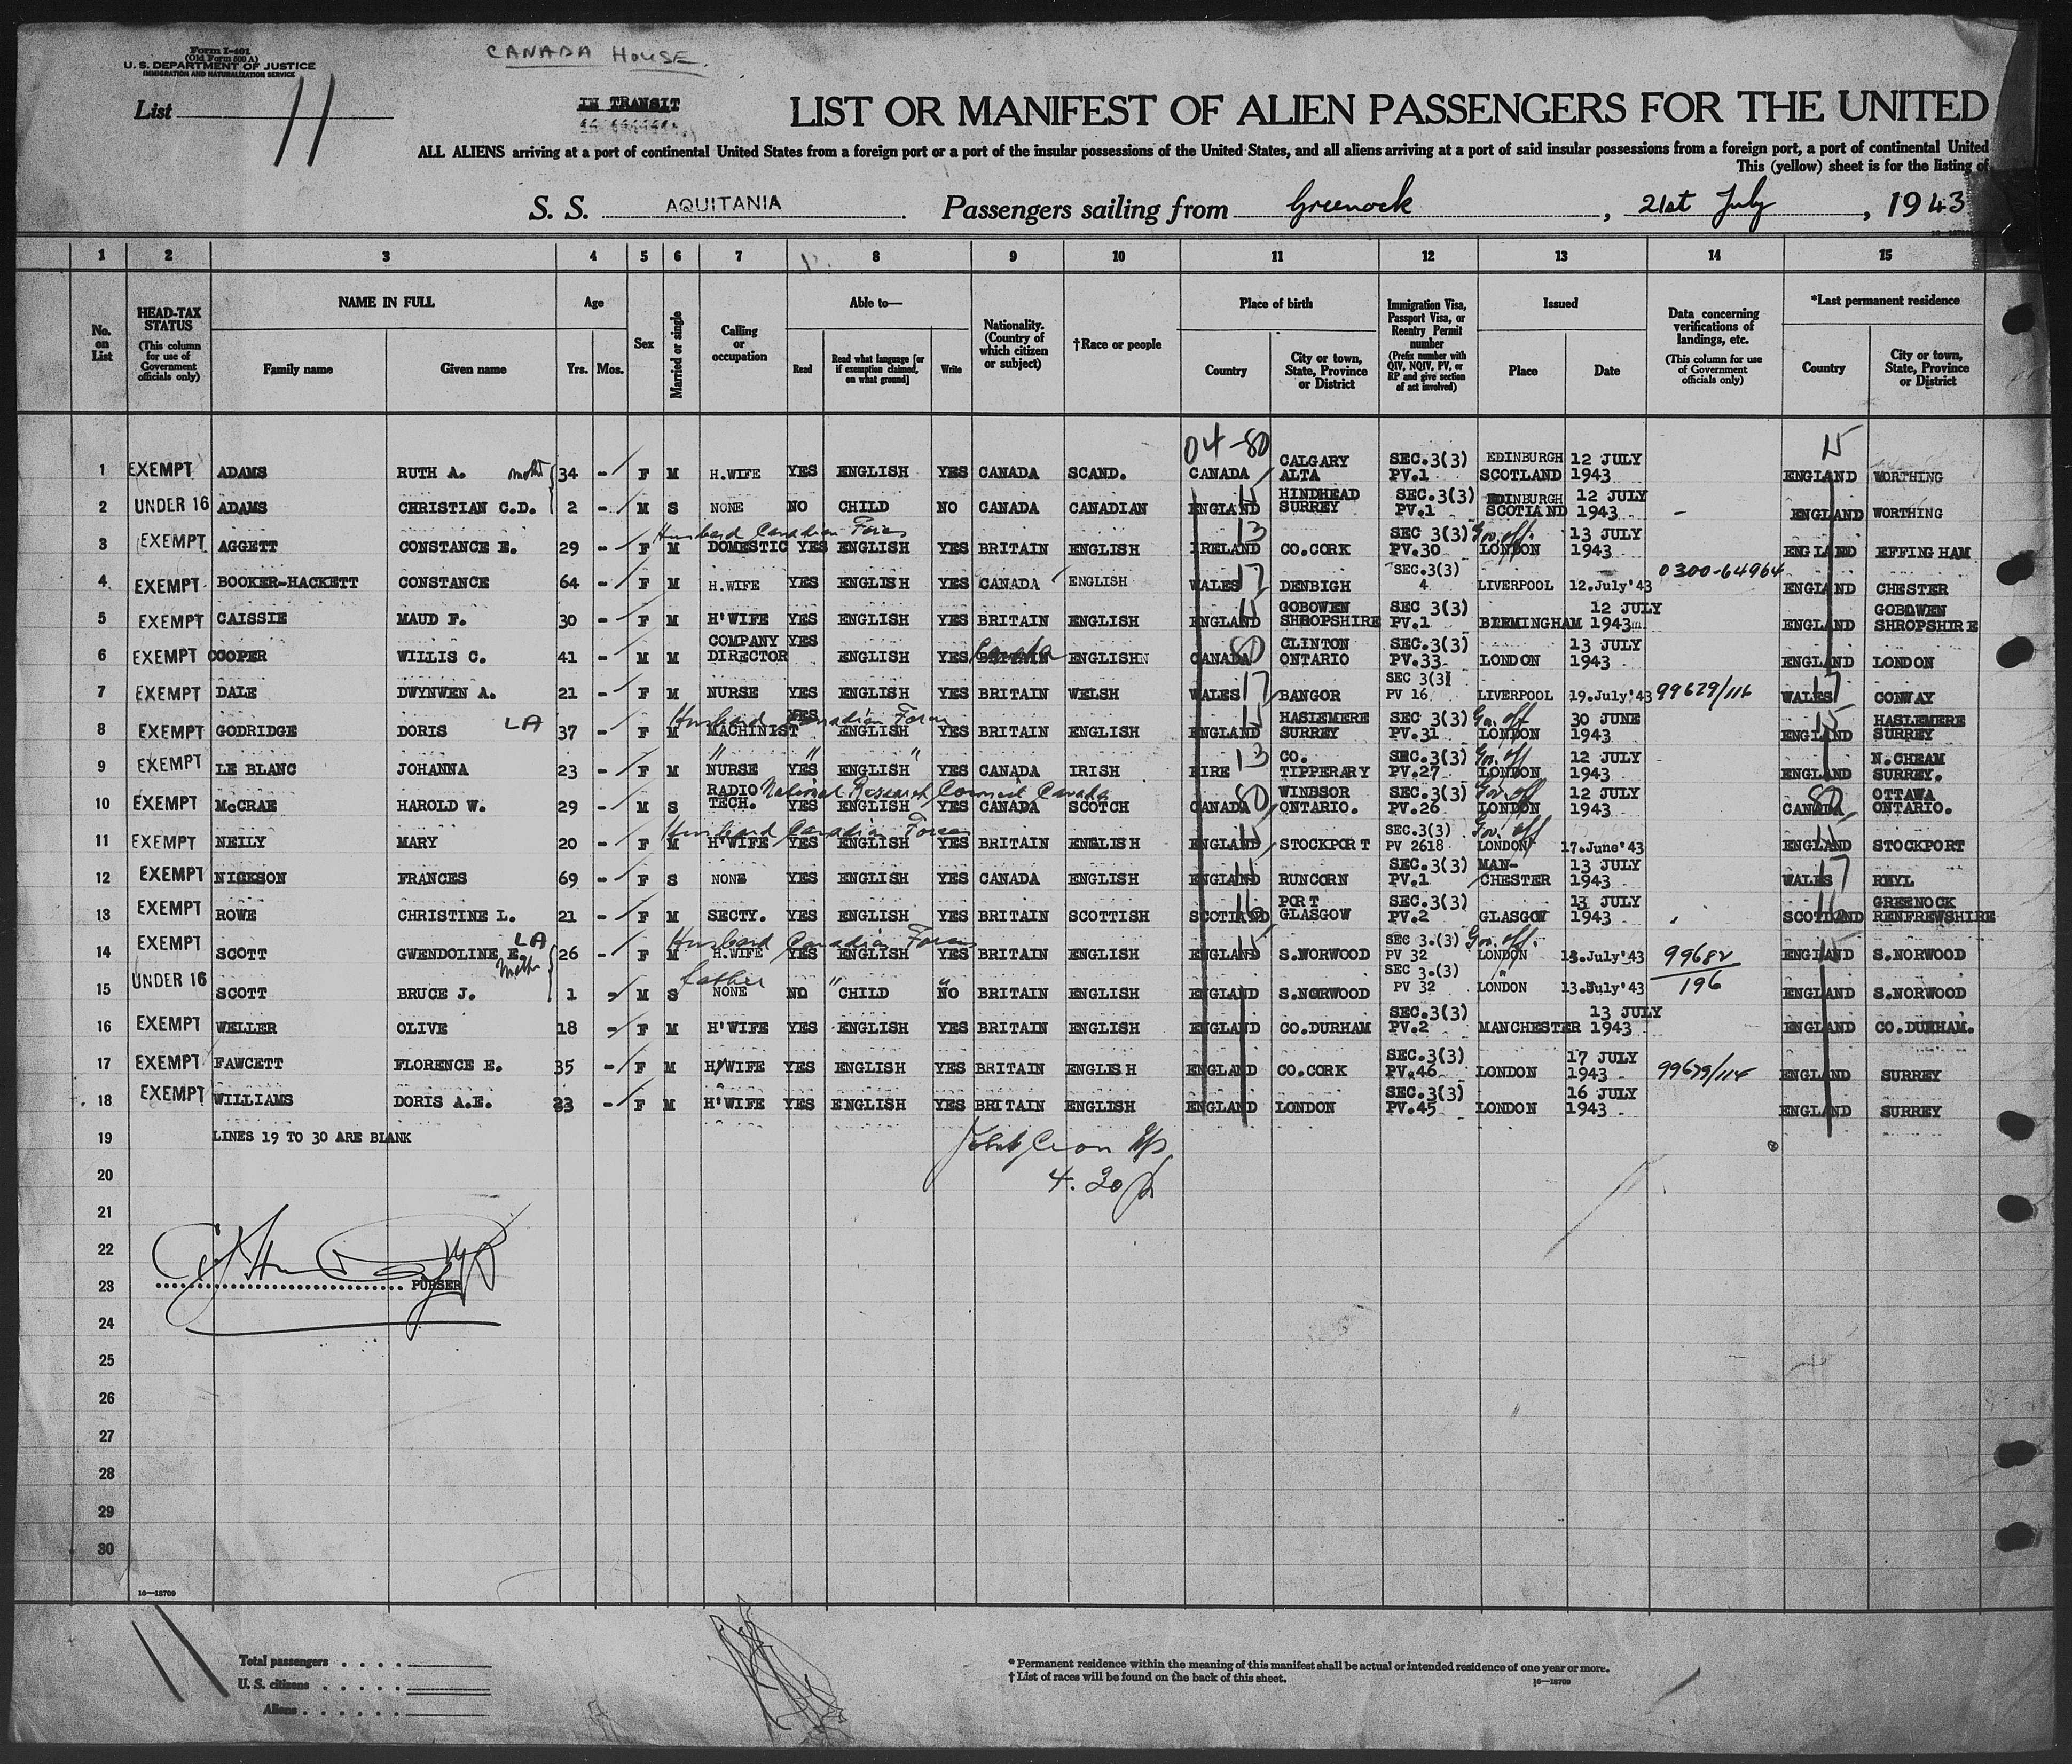 Form I-401
(Old Form 500 A)
U. S. DEPARTMENT OF JUSTICE
IMMIGRATION AND NATURALIZATION SERVICE
CANADA HOUSE.
List 11
IN TRANSIT
LIST OR MANIFEST OF ALIEN PASSENGERS FOR THE UNITED
ALL ALIENS arriving at a port of continental United States from a foreign port or a port of the insular possessions of the United States, and all aliens arriving at a port of said insular possessions from a foreign port, a port of continental United
This (yellow) sheet is for the listing of
S. S. AQUITANIA. Passengers sailing from Greenock, 21st July, 1943
1 2 3 4 5 6 7 8 9 10 11 12 13 14 15
No. on List
HEAD-TAX STATUS (This column for use of Government officials only)
NAME IN FULL Family name Given name
Age Yrs. Mos.
Sex
Married or single
Calling or occupation
Able to— Read Read what language [or if exemption claimed, on what ground] Write
Nationality. (Country of which citizen or subject)
†Race or people
Place of birth Country City or town, State, Province or District
Immigration Visa, Passport Visa, or Reentry Permit number (Prefix number with QIV, NQIV, PV, or RP and give section of act involved)
Issued Place Date
Data concerning verifications of landings, etc. (This column for use of Government officials only)
*Last permanent residence Country City or town, State, Province or District
04-80 15
1 EXEMPT ADAMS RUTH A. 34 - F M H.WIFE YES ENGLISH YES CANADA SCAND. CANADA CALGARY ALTA SEC.3(3) PV.1 EDINBURGH SCOTLAND 12 JULY 1943 ENGLAND WORTHING
2 UNDER 16 ADAMS CHRISTIAN C.D. 2 - M S NONE NO CHILD NO CANADA CANADIAN ENGLAND HINDHEAD SURREY SEC.3(3) PV.1 EDINBURGH SCOTLAND 12 JULY 1943 - ENGLAND WORTHING
Husband Canadian Forces
3 EXEMPT AGGETT CONSTANCE E. 29 - F M DOMESTIC YES ENGLISH YES BRITAIN ENGLISH IRELAND 13 CO.CORK SEC 3(3) PV.30 Gov. off. LONDON 13 JULY 1943 ENGLAND EFFINGHAM
4 EXEMPT BOOKER-HACKETT CONSTANCE 64 - F M H.WIFE YES ENGLISH YES CANADA ENGLISH WALES 17 DENBIGH SEC.3(3) 4 LIVERPOOL 12.July'43 0300-64964 ENGLAND CHESTER
5 EXEMPT CAISSIE MAUD F. 30 - F M H'WIFE YES ENGLISH YES BRITAIN ENGLISH ENGLAND GOBOWEN SHROPSHIRE SEC 3(3) PV.1 BIRMINGHAM 12 JULY 1943 ENGLAND GOBOWEN SHROPSHIRE
6 EXEMPT COOPER WILLIS C. 41 - M M COMPANY DIRECTOR YES ENGLISH YES BRITAIN Canada ENGLISH CANADA 80 CLINTON ONTARIO SEC.3(3) PV.33 LONDON 13 JULY 1943 ENGLAND LONDON
7 EXEMPT DALE DWYNWEN A. 21 - F M NURSE YES ENGLISH YES BRITAIN WELSH WALES 17 BANGOR SEC 3(3) PV 16 LIVERPOOL 19.July'43 99629/116 WALES 17 CONWAY
Husband Canadian Forces
8 EXEMPT GODRIDGE DORIS LA 37 - F M MACHINIST YES ENGLISH YES BRITAIN ENGLISH ENGLAND 15 HASLEMERE SURREY SEC 3(3) PV.31 Gov. off LONDON 30 JUNE 1943 ENGLAND 15 HASLEMERE SURREY
" " "
9 EXEMPT LE BLANC JOHANNA 23 - F M NURSE YES ENGLISH YES CANADA IRISH EIRE 13 CO. TIPPERARY SEC.3(3) PV.27 Gov. off LONDON 12 JULY 1943 ENGLAND N.CHEAM SURREY.
National Research Council Canada
10 EXEMPT McCRAE HAROLD W. 29 - M S RADIO TECH. YES ENGLISH YES CANADA SCOTCH CANADA 80 WINDSOR ONTARIO. SEC.3(3) PV.26 Gov. off LONDON 12 JULY 1943 CANADA 80 OTTAWA ONTARIO.
Husband Canadian Forces
11 EXEMPT NEILY MARY 20 - F M H'WIFE YES ENGLISH YES BRITAIN ENGLISH ENGLAND 15 STOCKPORT SEC.3(3) PV 2618 Gov. off LONDON 17.June'43 ENGLAND 15 STOCKPORT
12 EXEMPT NICKSON FRANCES 69 - F S NONE YES ENGLISH YES CANADA ENGLISH ENGLAND RUNCORN SEC.3(3) PV.1 MAN-CHESTER 13 JULY 1943 WALES 17 RHYL
13 EXEMPT ROWE CHRISTINE L. 21 - F M SECTY. YES ENGLISH YES BRITAIN SCOTTISH SCOTLAND 16 PORT GLASGOW SEC.3(3) PV.2 GLASGOW 13 JULY 1943 SCOTLAND 16 GREENOCK RENFREWSHIRE
Husband Canadian Forces
14 EXEMPT SCOTT GWENDOLINE E. LA 26 - F M H.WIFE YES ENGLISH YES BRITAIN ENGLISH ENGLAND 15 S.NORWOOD SEC 3.(3) PV 32 Gov. off. LONDON 13.July'43 99682/196 ENGLAND 15 S.NORWOOD
father " "
15 UNDER 16 SCOTT BRUCE J. 1 - M S NONE NO CHILD NO BRITAIN ENGLISH ENGLAND S.NORWOOD SEC 3.(3) PV 32 " LONDON 13.July'43 ENGLAND S.NORWOOD
16 EXEMPT WELLER OLIVE 18 - F M H'WIFE YES ENGLISH YES BRITAIN ENGLISH ENGLAND CO.DURHAM SEC.3(3) PV.2 MANCHESTER 13 JULY 1943 ENGLAND CO.DURHAM.
17 EXEMPT FAWCETT FLORENCE E. 35 - F M H'WIFE YES ENGLISH YES BRITAIN ENGLISH ENGLAND CO.CORK SEC.3(3) PV.46 LONDON 17 JULY 1943 99679/114 ENGLAND SURREY
18 EXEMPT WILLIAMS DORIS A.E. 23 - F M H'WIFE YES ENGLISH YES BRITAIN ENGLISH ENGLAND LONDON SEC.3(3) PV.45 LONDON 16 JULY 1943 ENGLAND SURREY
19 LINES 19 TO 30 ARE BLANK
20
21
22
23 PURSER
24
25
26
27
28
29
30
16—18709
11
Total passengers
U. S. citizens
Aliens
* Permanent residence within the meaning of this manifest shall be actual or intended residence of one year or more.
† List of races will be found on the back of this sheet.
16—18709